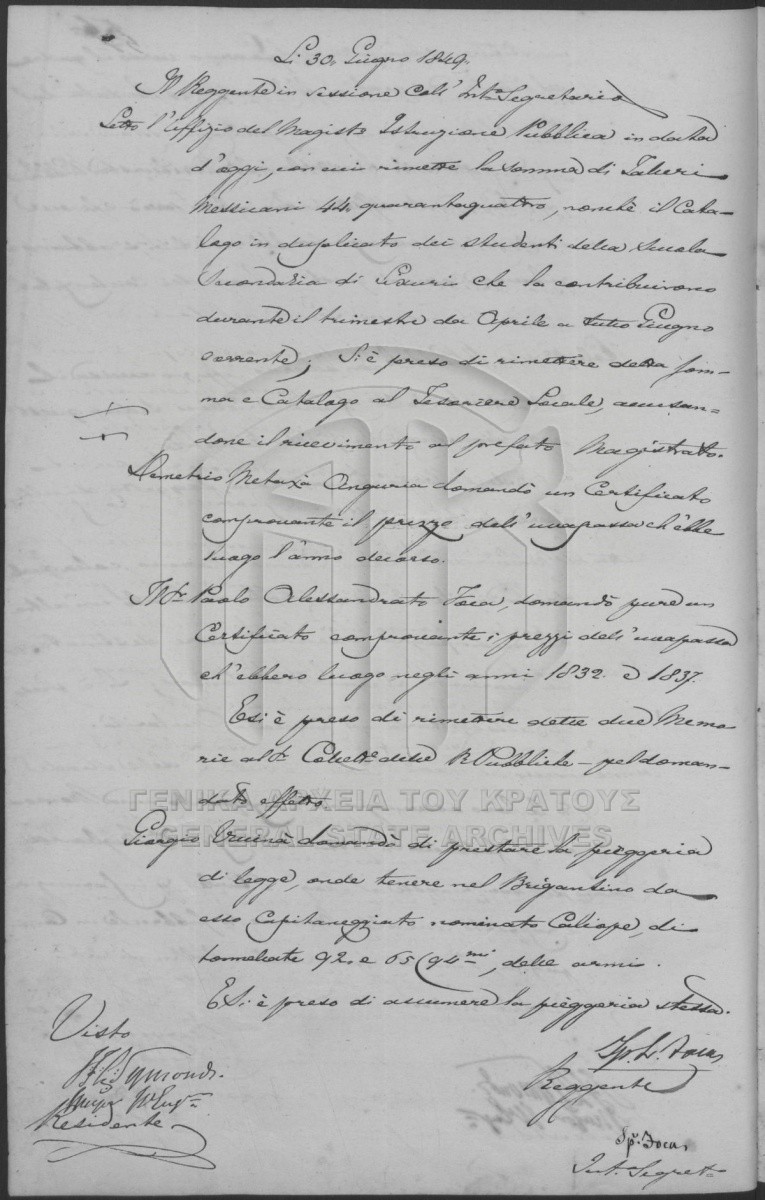 Li 30. Giugno 1849.
Il Reggente in sessione coll' Int.o Segretario
Letto l'Uffizio del Magist.o Istruzione Pubblica in data
d'oggi, con cui rimette la somma di Talleri
Messicani 44. quarantaquattro, nonchè il Cata-
logo in duplicato dei studenti della Scuola
Secondaria di Lixuri che la contribuirono
durante il trimestre da Aprile a tutto Giugno
corrente; Si è preso di rimettere detta som-
ma e Catalogo al Tesoriere Locale, accusan-
done il ricevimento al prefato Magistrato.
Demetrio Metaxà Anguria domandò un Certificato
comprovante il prezzo dell' uva passa ch'ebbe
luogo l'anno decorso.
Paolo Alessandrato Foca, domandò pure un
Certificato comprovante i prezzi dell' uva passa
ch' ebbero luogo negli anni 1832. e 1837.
E si è preso di rimettere dette due Memo-
rie al delle R. Pubbliche pel doman-
dato effetto.
ΓΕΝΙΚΑ ΑΡΧΕΙΑ ΤΟΥ ΚΡΑΤΟΥΣ
GENERAL STATE ARCHIVES
Giorgio domandò di prestare la pieggeria
di legge, onde tenere nel Brigantino da
esso Capitaneggiato nominato Caliope, di
tonnellate 92. e 65/94.mi, delle armi.
E Si è preso di assumere la pieggeria stessa.
Visto
Residente
Sp. L. Focas
Reggente
Sp. Focas
Int. Segret.o